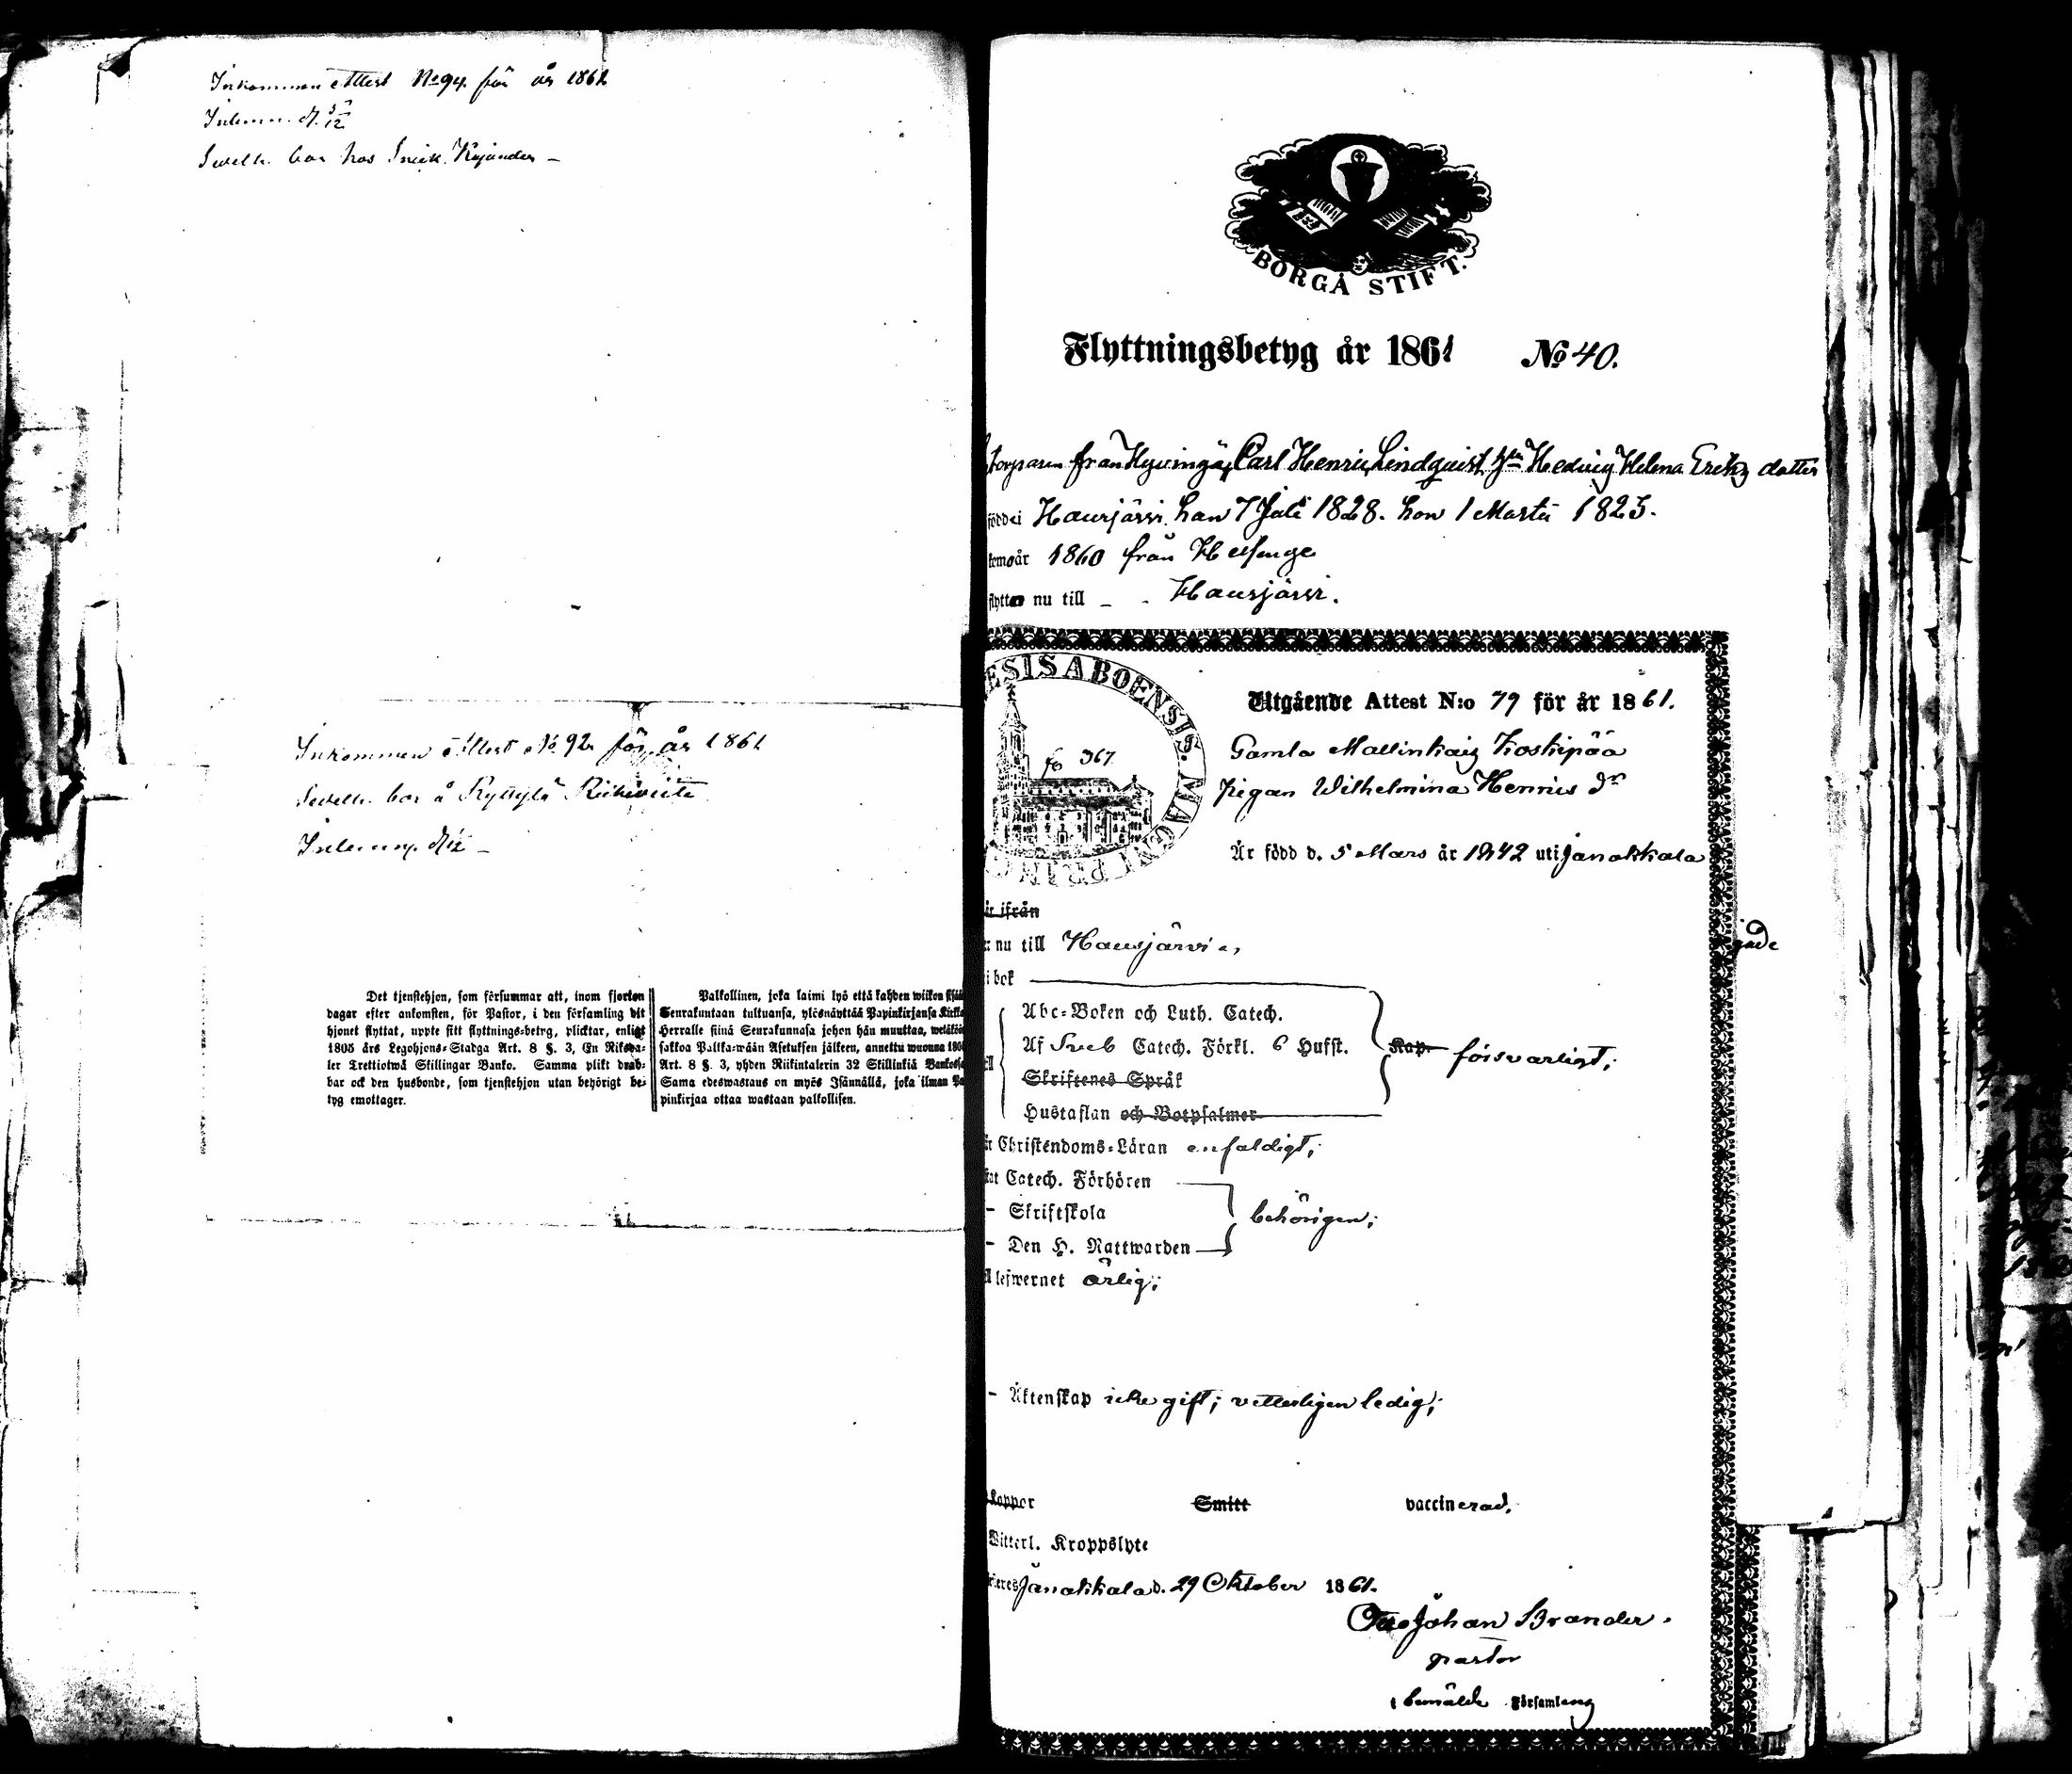 Inkommen Attest No 94. för år 1861
Inlemn. d. 5/12
Sedelh. bor hos Snick. Kajander –
Inkommen Attest No 92 för år 1861
Sedelh. bor å Ryttylä
Det tjenstehjon, som försummar att, inom fjorton
dagar efter ankomsten, för Pastor, i den församling dit
hjonet flyttat, uppte sitt flyttnings-betyg, plicktar, enligt
1805 års Legohjons-Stadga Art. 8 §. 3, En Riksda-
ler Trettiotwå Skillingar Banko. Samma plikt drab-
bar ock den husbonde, som tjenstehjon utan behörigt be-
tyg emottager.
Palkollinen, joka laimi lyö että kahden wiikon sisää
Seurakuntaan tultuansa, ylösnäyttää Papinkirjansa Kirkko
Herralle siinä Seurakunnasa johon hän muuttaa, wetäköö
sakkoa Palkka-wään Asetuksen jälkeen, annettu wuonna 180
Art. 8 §. 3, yhden Riikintalerin 32 Skillinkiä Bankosa
Sama edeswastaus on myös Isännällä, joka ilman Pa
pinkirjaa ottaa wastaan palkollisen.
BORGÅ STIFT.
Flyttningsbetyg år 1861 No 40.
torparen från Hyvingä, Carl Henric Lindquist, h:u Hedvig Helena Eriks dotter
född i Hausjärvi. han 7 Juli 1828. hon 1 Martii 1825.
kom år 1860 från Helsinge
flyttar nu till – . Hausjärvi.
ESIS ABOENSIS. MAGNI PRIN
fo 367.
Utgående Attest N:o 79 för år 1861.
Gamla Mallinkaig Koskipää
Pigan Wilhelmina Henriks dr
Är född d. 5 Mars år 1842 uti Janakkala
är ifrån
r nu till Hausjärvi,
gde
i bok
Abc-Boken och Luth. Catech.
Af Sveb Catech. Förkl. 6 Hufst. Kap. försvarligt;
Skriftenes Språk
Hustaflan och Botpsalmer
Christendoms-Läran enfaldigt;
at Catech. Förhören
– Skriftskola behörigen;
– Den H. Nattwarden
ll lefwernet ärlig;
– Äktenskap icke gift; vetterligen ledig;
Koppor Smitt vaccinerad.
Witterl. Kroppslyte
Janakkala d. 29 Oktober 1861.
Johan Brander.
pastor
i bemälde Församling